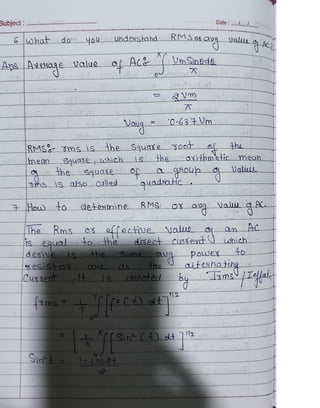 Subject : Date :
6 What do you understand RMS or avg value of AC?
Ans Average value of AC⇒ ∫₀^π Vm Sinθ dθ / π
= 2Vm / π
Vavg = 0.637 Vm
RMS⇒ rms is the Square root of the
mean square, which is the arithmetic mean
of the square of a group of values.
rms is also called quadratic.
7 How to determine RMS or avg value of AC.
The Rms or effective value of an AC
is equal to the direct current which
derive is the same avg power to
resistor as the alternating
Current, It is denoted by Irms / Ieff.
frms = [1/T ∫₀^T f²(t) dt]^1/2
= [1/π ∫₀^π Sin²(t) dt]^1/2
Sin²t = 1-cos2t / 2